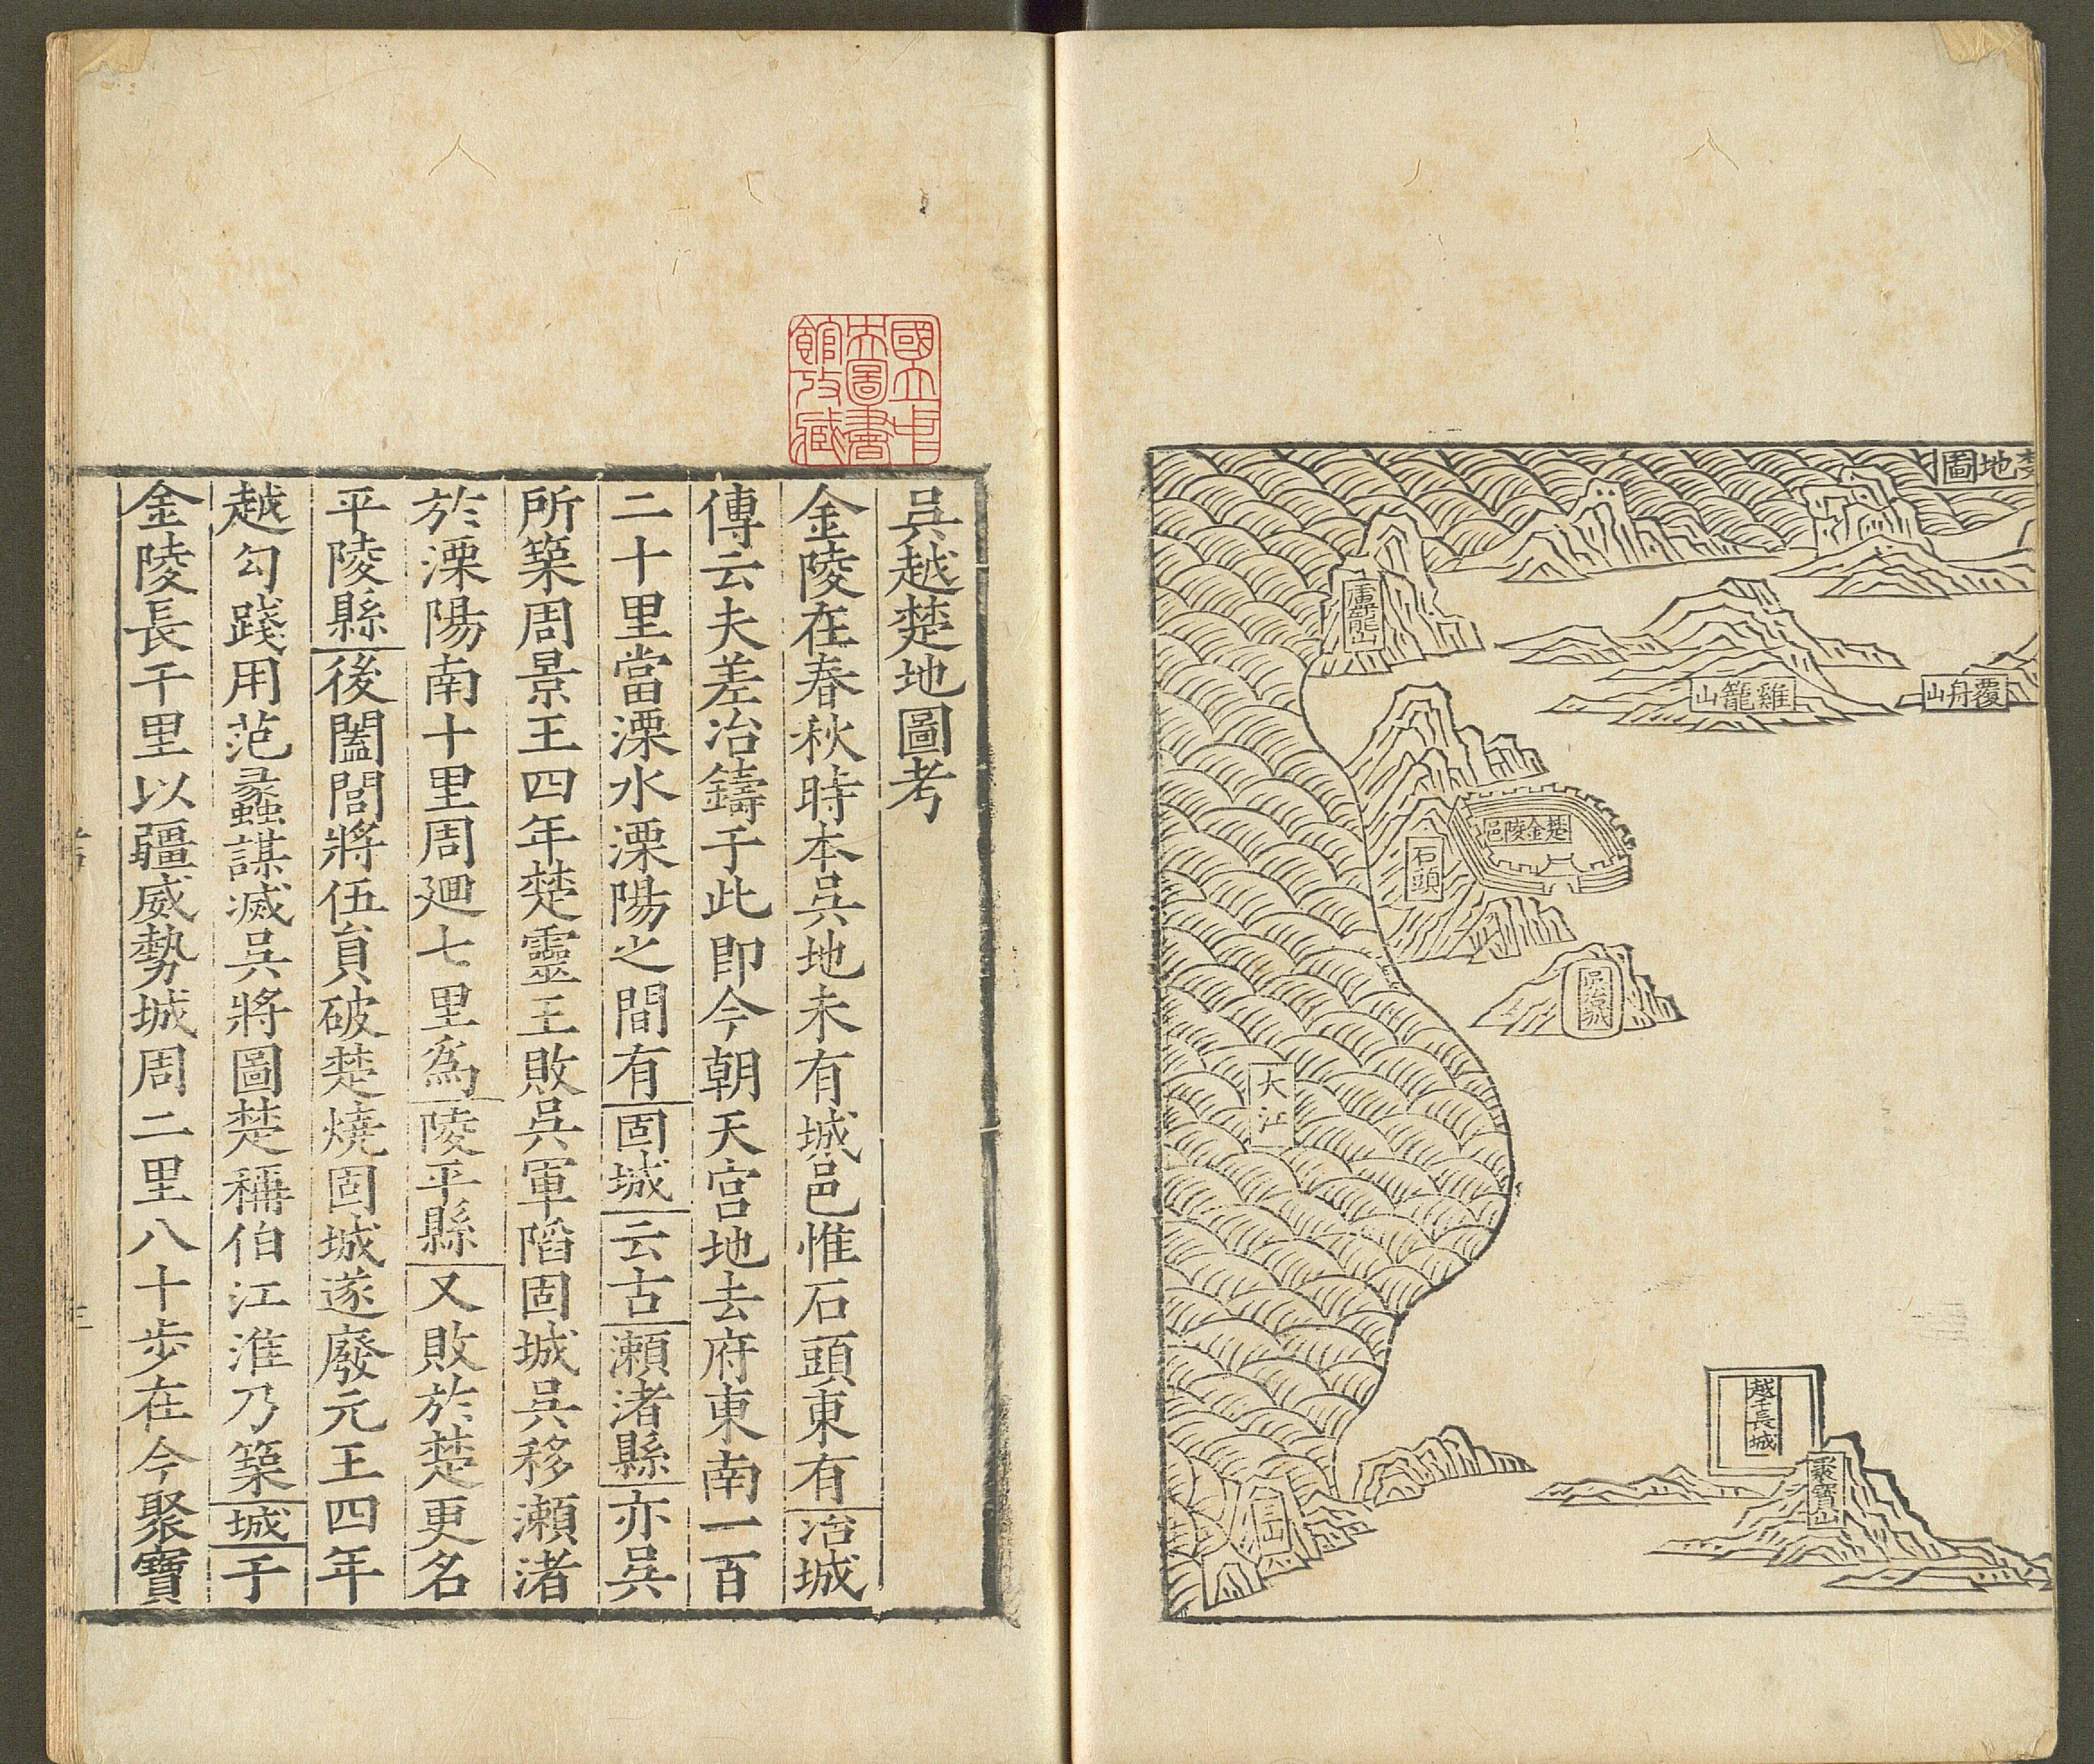 楚地圖
覆舟山
雞籠山
盧龍山
楚金陵邑
石頭
吳冶城
大江
越王長城
聚寶山
國立中央圖書館收藏
吳越楚地圖考
金陵在春秋時本吳地未有城邑惟石頭東有冶城
傳云夫差冶鑄于此即今朝天宮地去府東南一百
二十里當溧水溧陽之間有固城云古瀨渚縣亦吳
所築周景王四年楚靈王敗吳軍陷固城吳移瀨渚
於溧陽南十里周廻七里為陵平縣又敗於楚更名
平陵縣後闔閭將伍負破楚燒固城遂廢元王四年
越勾踐用范蠡謀滅吳將圖楚稱伯江淮乃築城于
金陵長千里以疆威勢城周二里八十步在今聚寶